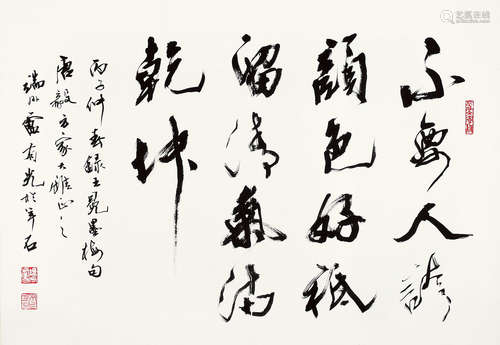 不要人誇
顏色好祗
留清氣滿
乾坤
丙子仲春錄王冕墨梅句
唐毅方家大雅正之
端州盧有光於羊石